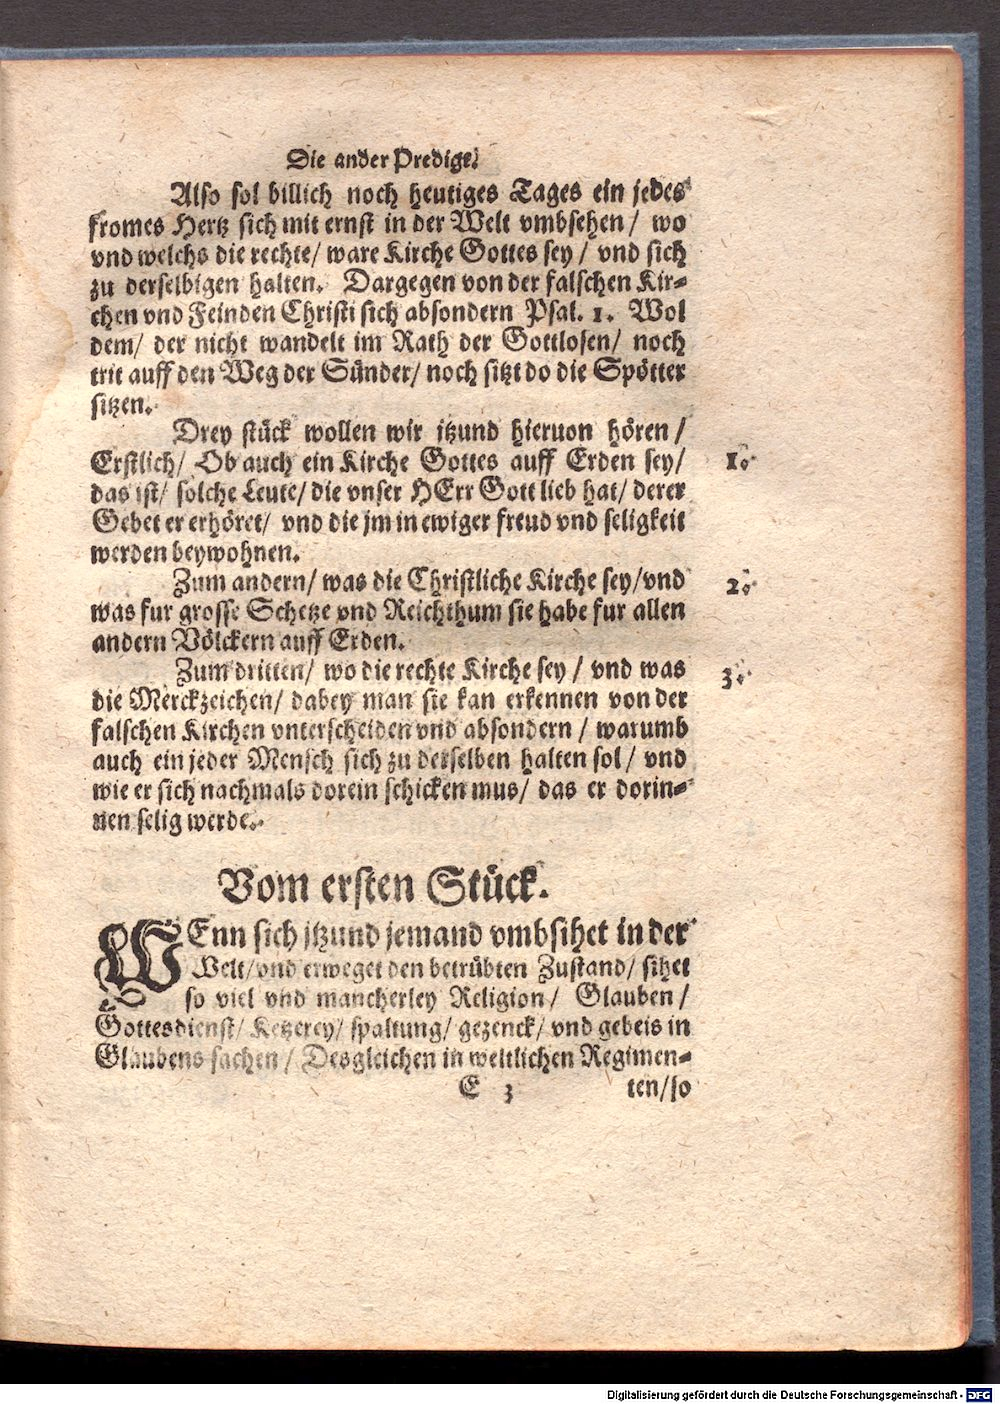 Die ander Predigt.
Also sol billich noch heutiges Tages ein jedes
fromes Hertz sich mit ernst in der Welt vmbsehen / wo
vnd welchs die rechte/ ware Kirche Gottes sey / vnd sich
zu derselbigen halten. Dargegen von der falschen Kir-
chen vnd Feinden Christi sich absondern Psal. 1. Wol
dem/ der nicht wandelt im Rath der Gottlosen/ noch
trit auff den Weg der Sünder/ noch sitzt do die Spötter
sitzen.
Drey stück wollen wir itzund hieruon hören /
Erstlich/ Ob auch ein Kirche Gottes auff Erden sey/
1.
das ist/ solche Leute/ die vnser HErr Gott lieb hat/ derer
Gebet er erhöret/ vnd die jm in ewiger freud vnd seligkeit
werden beywohnen.
Zum andern/ was die Christliche Kirche sey/vnd
2.
was fur grosse Schetze vnd Reichthum sie habe fur allen
andern Völckern auff Erden.
Zum dritten/ wo die rechte Kirche sey / vnd was
3.
die Merckzeichen/ dabey man sie kan erkennen von der
falschen Kirchen vnterscheiden vnd absondern / warumb
auch ein jeder Mensch sich zu derselben halten sol/ vnd
wie er sich nachmals dorein schicken mus/ das er dorin-
nen selig werde.
Vom ersten Stück.
WEnn sich jtzund jemand vmbsihet in der
Welt/vnd erweget den betrübten Zustand/ sihet
so viel vnd mancherley Religion/ Glauben/
Gottesdienst/ Ketzerey/ spaltung/ gezenck/ vnd gebeis in
Glaubens sachen/ Desgleichen in weltlichen Regimen-
E 3 ten/so
Digitalisierung gefördert durch die Deutsche Forschungsgemeinschaft - DFG